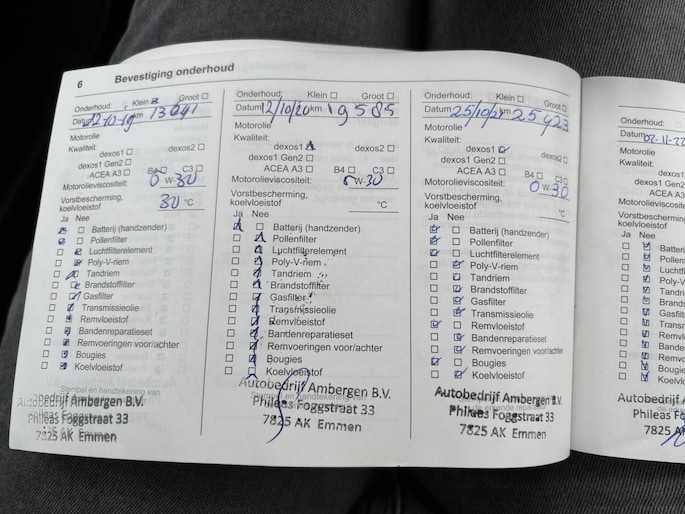 6 Bevestiging onderhoud
Onderhoud: Klein Groot
Datum 22-10-19 km 13041
Motorolie
Kwaliteit:
dexos1 dexos2
dexos1 Gen2
ACEA A3 B4 C3
Motorolieviscositeit: 0 W-30
Vorstbescherming,
koelvloeistof 30 °C
Ja Nee
Batterij (handzender)
Pollenfilter
Luchtfilterelement
Poly-V-riem
Tandriem
Brandstoffilter
Gasfilter
Transmissieolie
Remvloeistof
Bandenreparatieset
Remvoeringen voor/achter
Bougies
Koelvloeistof
Stempel en handtekening van
Autobedrijf Ambergen B.V.
Phileas Foggstraat 33
7825 AK Emmen
Onderhoud: Klein Groot
Datum 12/10/20 km 19585
Motorolie
Kwaliteit:
dexos1 dexos2
dexos1 Gen2
ACEA A3 B4 C3
Motorolieviscositeit: 0 W-30
Vorstbescherming,
koelvloeistof °C
Ja Nee
Batterij (handzender)
Pollenfilter
Luchtfilterelement
Poly-V-riem
Tandriem
Brandstoffilter
Gasfilter
Transmissieolie
Remvloeistof
Bandenreparatieset
Remvoeringen voor/achter
Bougies
Koelvloeistof
Autobedrijf Ambergen B.V.
Stempel en handtekening van
Phileas Foggstraat 33
7825 AK Emmen
Onderhoud: Klein Groot
Datum 25/10/21 km 25423
Motorolie
Kwaliteit:
dexos1 dexos2
dexos1 Gen2
ACEA A3 B4 C3
Motorolieviscositeit: 0 W-30
Vorstbescherming,
koelvloeistof °C
Ja Nee
Batterij (handzender)
Pollenfilter
Luchtfilterelement
Poly-V-riem
Tandriem
Brandstoffilter
Gasfilter
Transmissieolie
Remvloeistof
Bandenreparatieset
Remvoeringen voor/achter
Bougies
Koelvloeistof
Autobedrijf Ambergen B.V.
Phileas Foggstraat 33
7825 AK Emmen
Onderhoud:
Datum 02-11-22
Motorolie
Kwaliteit:
dexos1
dexos1 Gen2
ACEA A3
Motorolieviscositeit:
Vorstbescherming,
koelvloeistof
Ja Nee
Batterij
Pollen
Luchtfi
Poly-V
Tandri
Brands
Gasfilt
Transm
Remvl
Bande
Remvo
Bougi
Koelvl
Autobedrijf A
Phileas Fo
7825 A